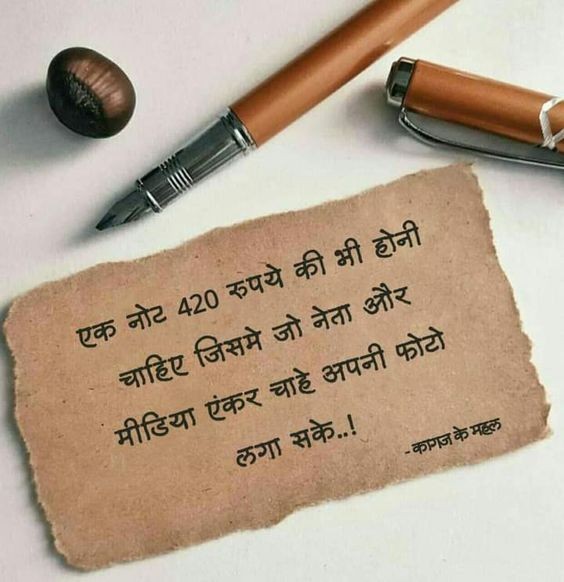 एक नोट 420 रुपये की भी होनी
चाहिए जिसमे जो नेता और
मीडिया एंकर चाहे अपनी फोटो
लगा सके..!
- कागज के महल